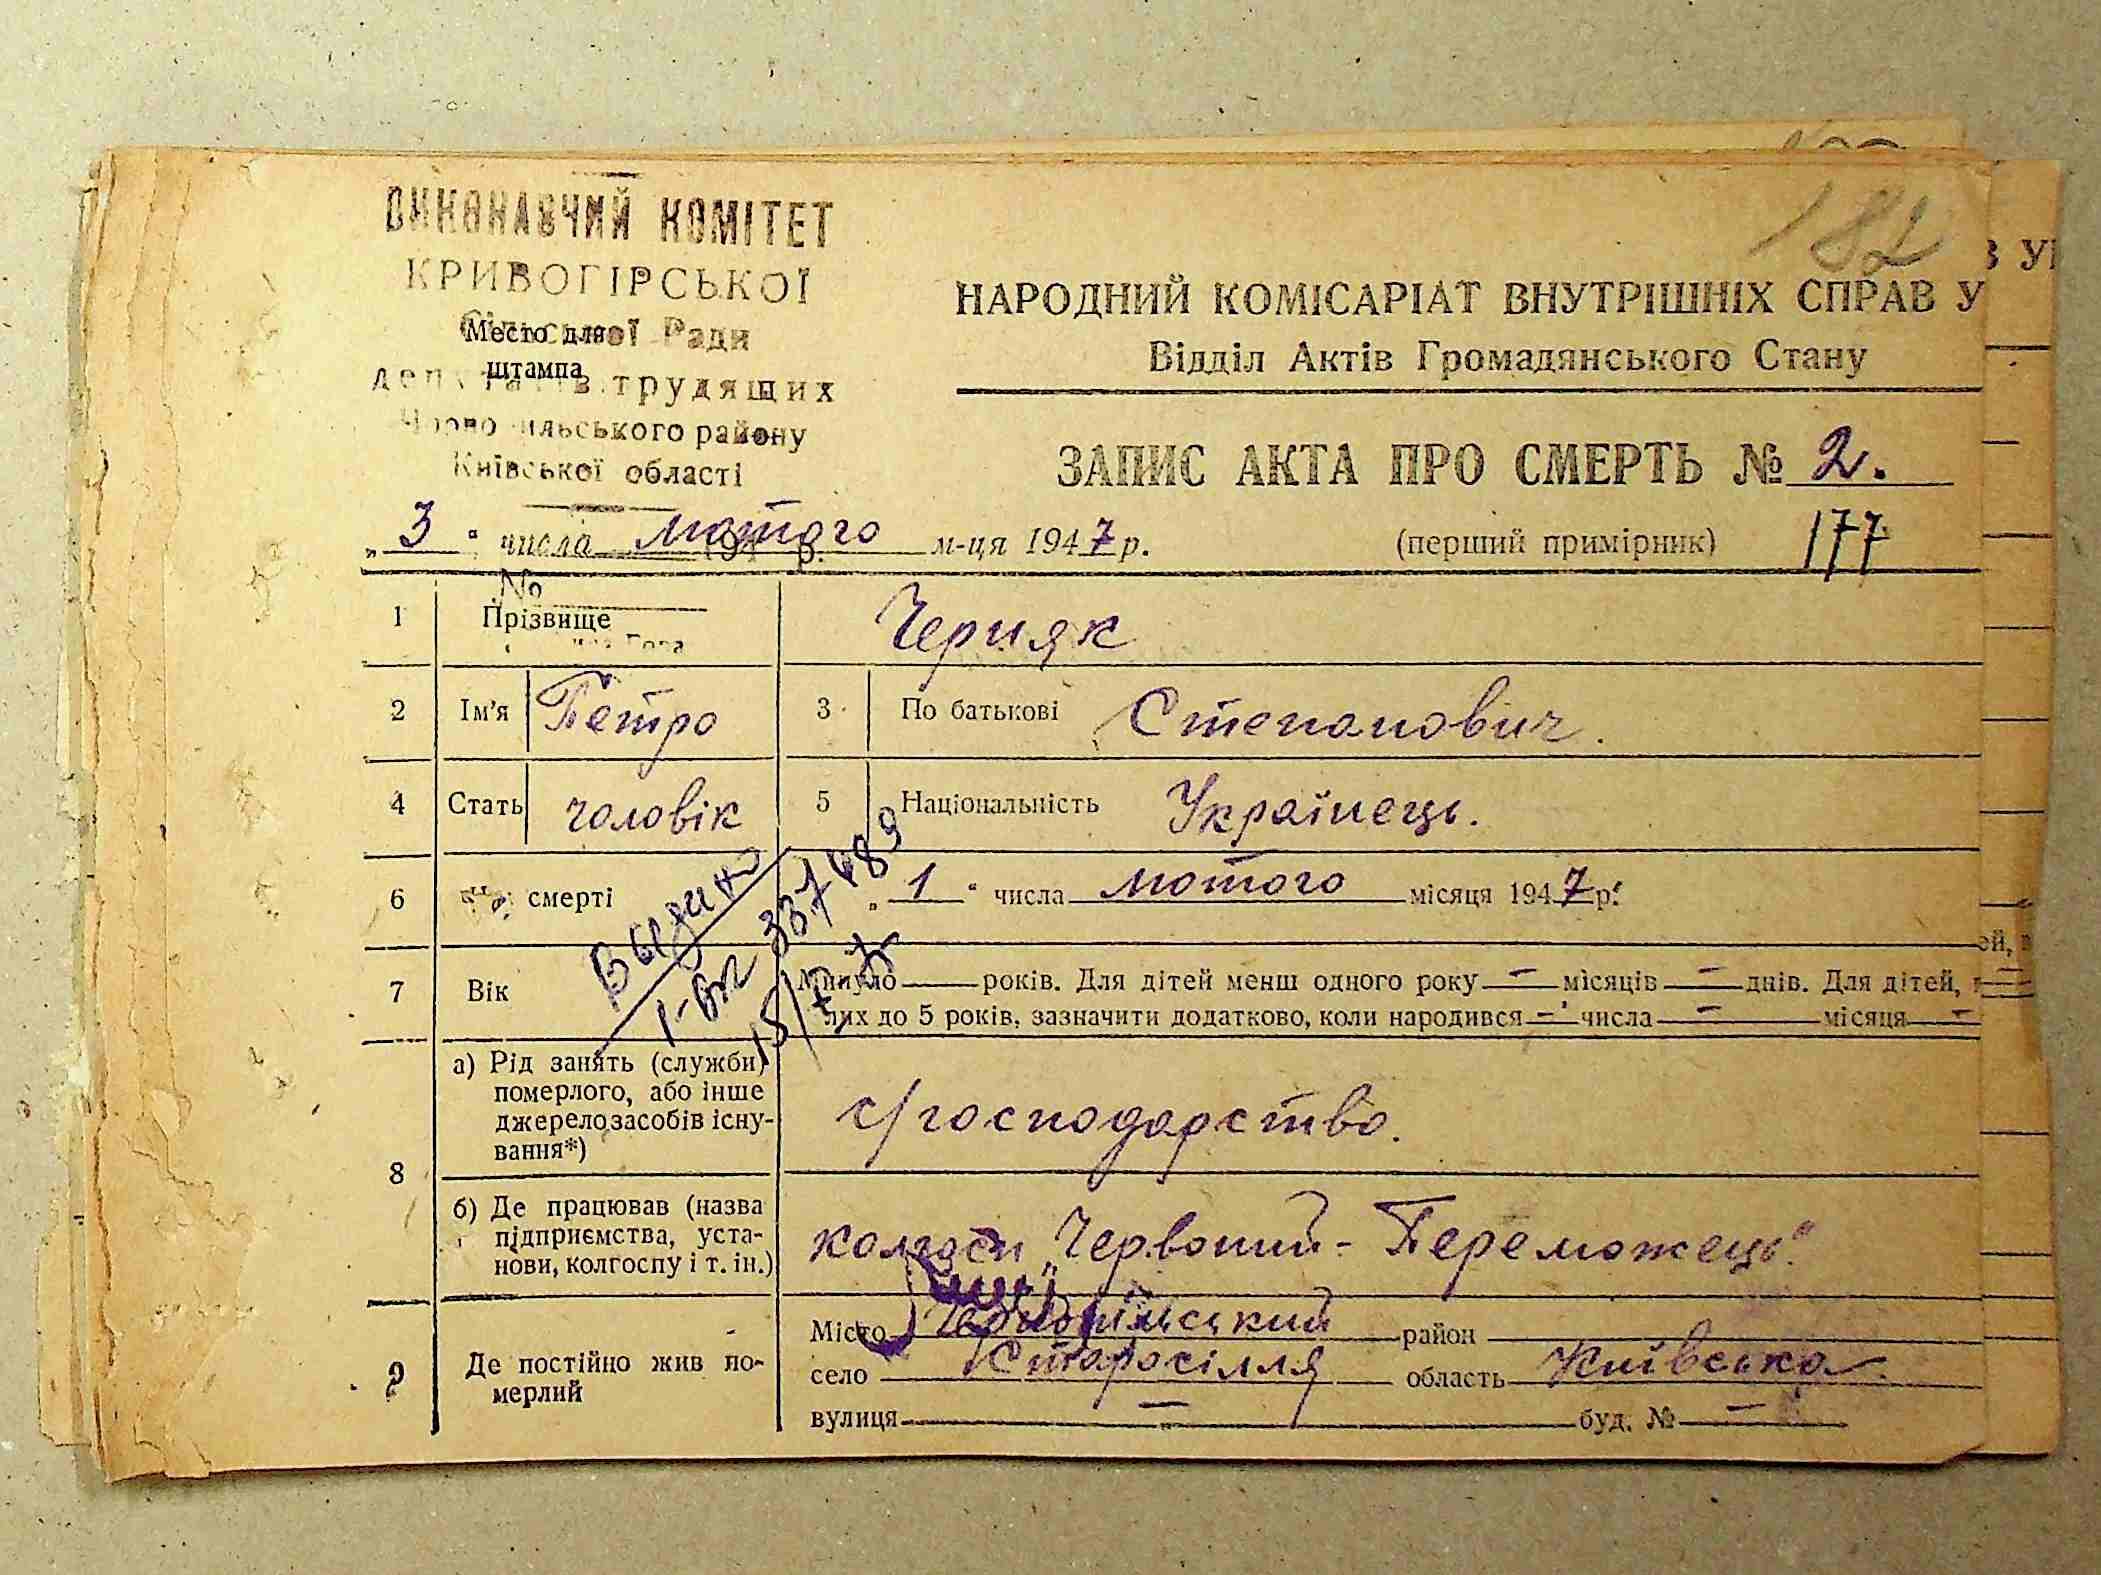 182
ВИКОНАВЧИЙ КОМІТЕТ
КРИВОГІРСЬКОЇ
Сільської Ради
Место для
штампа
депутатів трудящих
Чорнобильського району
Київської області
НАРОДНИЙ КОМІСАРІАТ ВНУТРІШНІХ СПРАВ У
Відділ Актів Громадянського Стану
ЗАПИС АКТА ПРО СМЕРТЬ № 2.
„3" числа лютого м-ця 1947 р. (перший примірник) 177
№
1 Прізвище Черняк
2 Ім'я Петро 3 По батькові Степанович.
4 Стать чоловік 5 Національність Українець.
6 смерті „1" числа лютого місяця 1947 р.
7 Вік Минуло — років. Для дітей менш одного року — місяців — днів. Для дітей,
лих до 5 років, зазначити додатково, коли народився — числа — місяця —
8 а) Рід занять (служби)
померлого, або інше
джерело засобів існу-
вання*)
с/господарство.
б) Де працював (назва
підприємства, уста-
нови, колгоспу і т. ін.)
колгосп „Червоний-Переможець"
9 Де постійно жив по-
мерлий
Місто район
село Старосілля область Київська.
вулиця — буд. № —